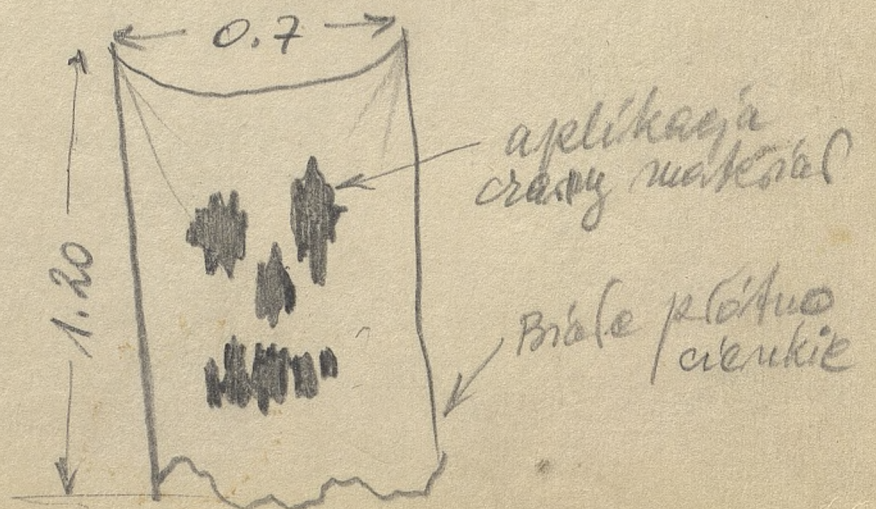 0.7
aplikacja
czarny materiał
1.20
Białe płótno
cienkie